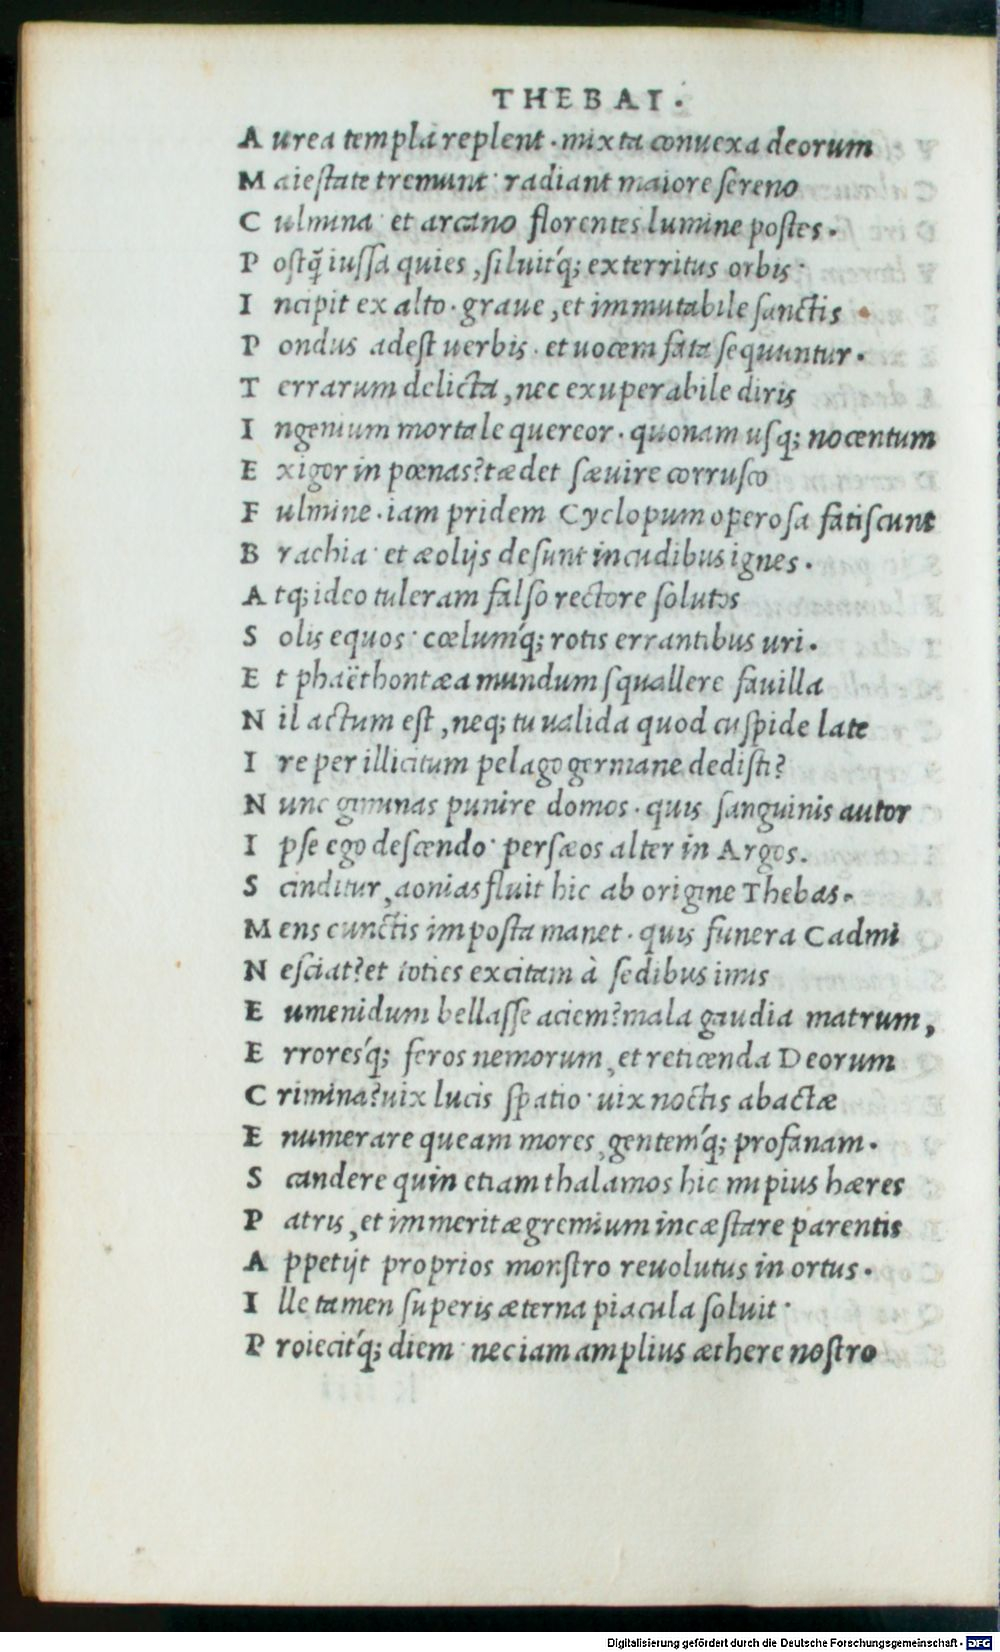 THEBAI.
A urea templa replent · mixta conuexa deorum
M aiestate tremunt· radiant maiore sereno
C ulmina· et arcano florentes lumine postes.
P ostq̃ iussa quies, siluitq́; exterritus orbis·
I ncipit ex alto · graue, et immutabile sanctis
P ondus adest uerbis · et uocem fata sequuntur.
T errarum delicta, nec exuperabile diris
I ngenium mortale quereor · quonam usq; nocentum
E xigor in pœnas? tædet sæuire corrusco
F ulmine · iam pridem Cyclopum operosa fatiscunt
B rachia· et æolijs desunt incudibus ignes.
A tq; ideo tuleram falso rectore solutos
S olis equos· cœlumq́; rotis errantibus uri.
E t phaëthontæa mundum squallere fauilla
N il actum est, neq; tu ualida quod cuspide late
I re per illicitum pelago germane dedisti?
N unc geminas punire domos · quis sanguinis autor
I pse ego descendo· persæos alter in Argos.
S cinditur, aonias fluit hic ab origine Thebas.
M ens cunctis imposta manet · quis funera Cadmi
N esciat? et toties excitam à sedibus imis
E umenidum bellasse aciem? mala gaudia matrum,
E rroresq́; feros nemorum, et reticenda Deorum
C rimina? uix lucis spatio· uix noctis abactæ
E numerare queam mores, gentemq́; profanam.
S candere quin etiam thalamos hic impius hæres
P atris, et immeritæ gremium incæstare parentis
A ppetijt proprios monstro reuolutus in ortus.
I lle tamen superis æterna piacula soluit·
P roiecitq́; diem· nec iam amplius æthere nostro
Digitalisierung gefördert durch die Deutsche Forschungsgemeinschaft - DFG